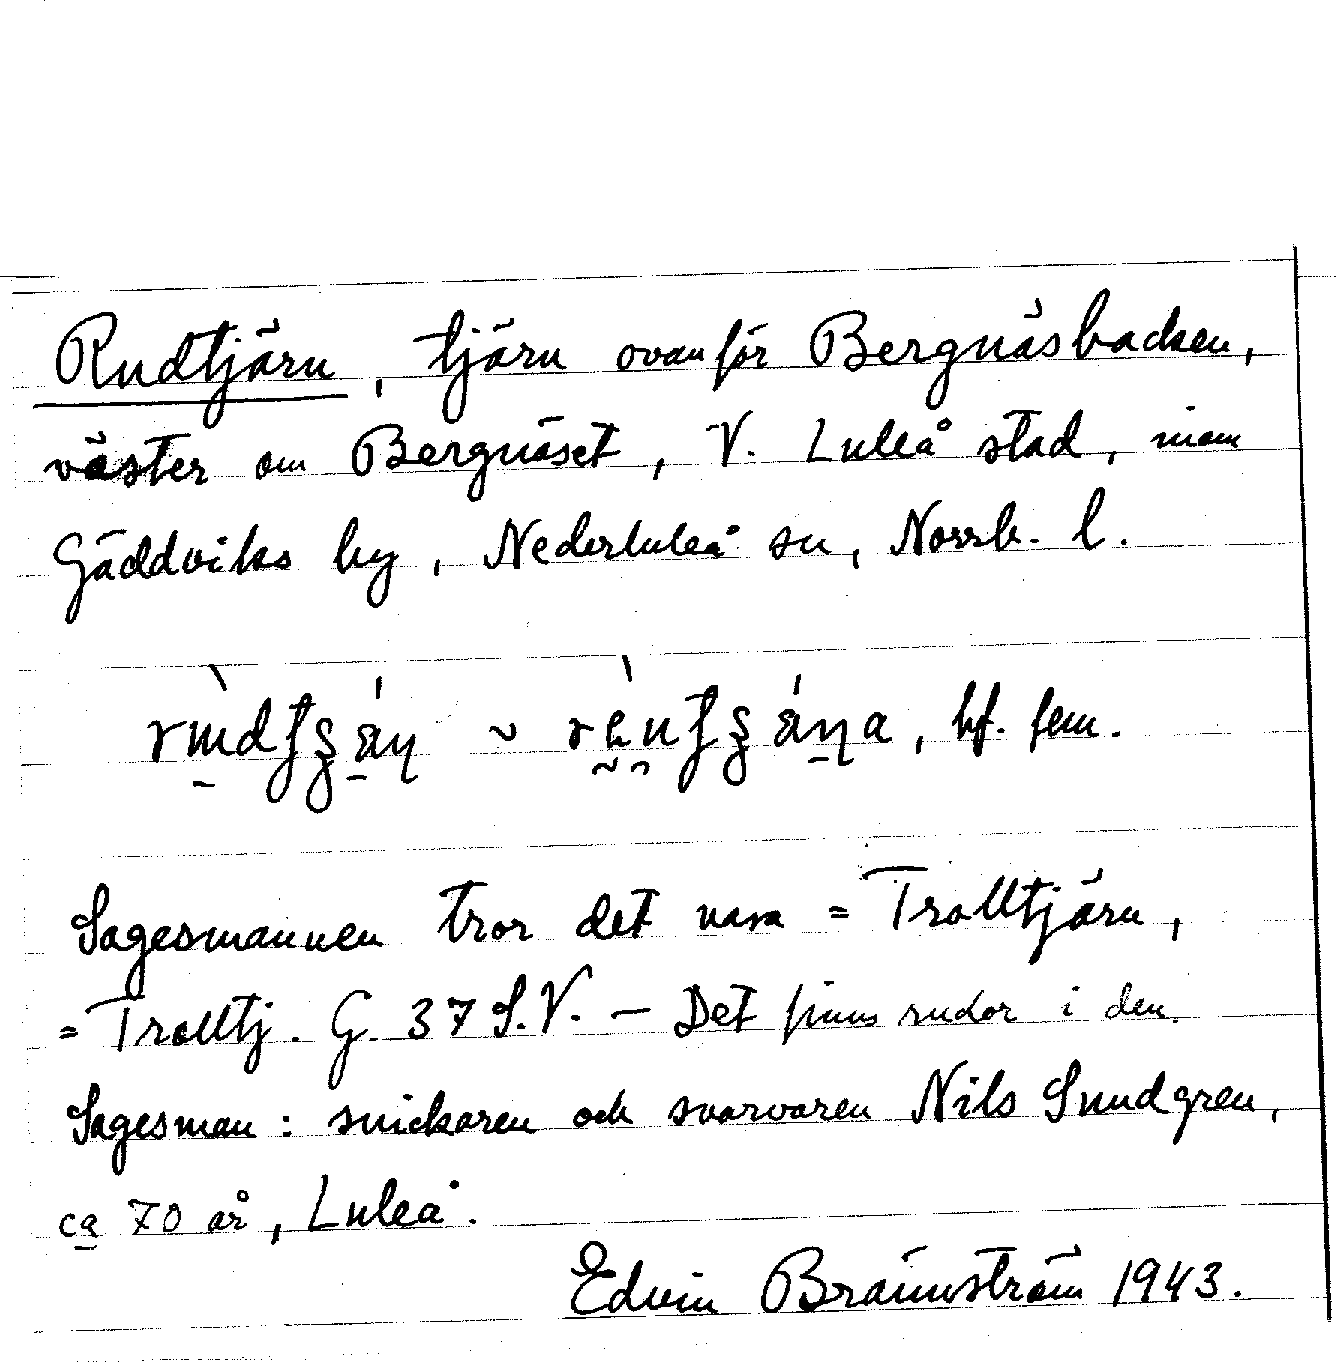 Rudtjärn, tjärn ovanför Bergnäsbacken,
väster om Bergnäset, V. Luleå stad, inom
Gäddviks by, Nederluleå sn, Norrb. l.
bf. fem.
Sagesmannen tror det vara = Trolltjärn,
= Trolltj. G. 37 S.V. – Det finns rudor i den.
Sagesman: snickaren och svarvaren Nils Sundgren,
ca 70 år, Luleå.
Edvin Brännström 1943.